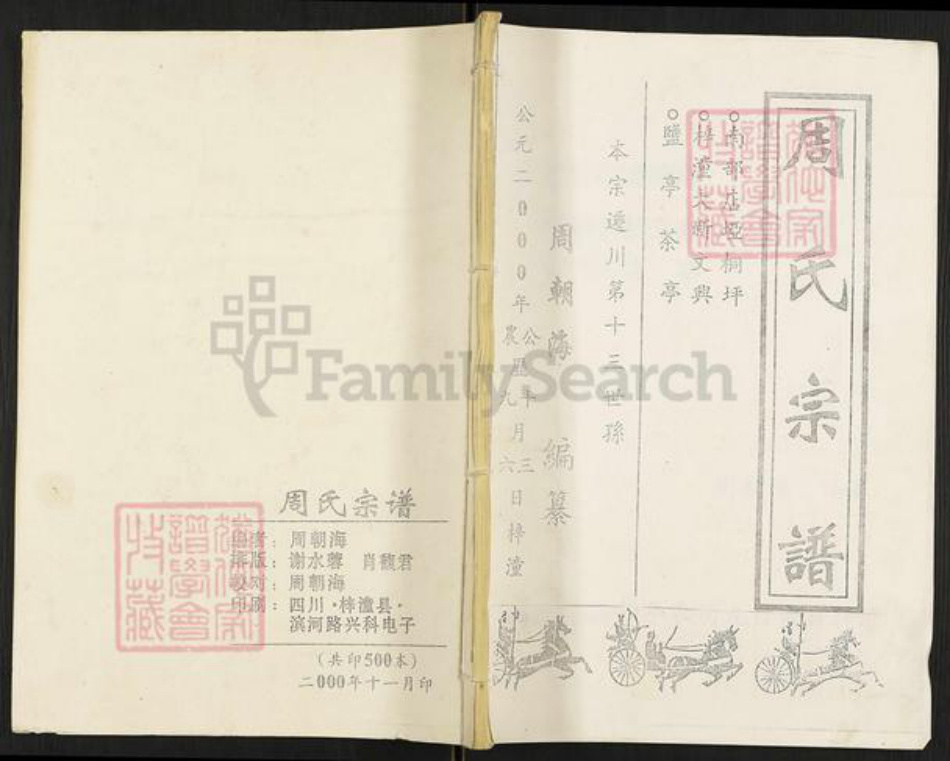 周氏宗譜
○南部店埡桐坪
○梓潼大新文興
○鹽亭茶亭
本宗遷川第十三世孫
周朝海 編纂
公元二000年公曆
農歷九月三
六日梓潼
周氏宗谱
编者：周朝海
排版：谢水蓉 肖馥君
校对：周朝海
印刷：四川·梓潼县·
滨河路兴科电子
（共印500本）
二000年十一月印
FamilySearch